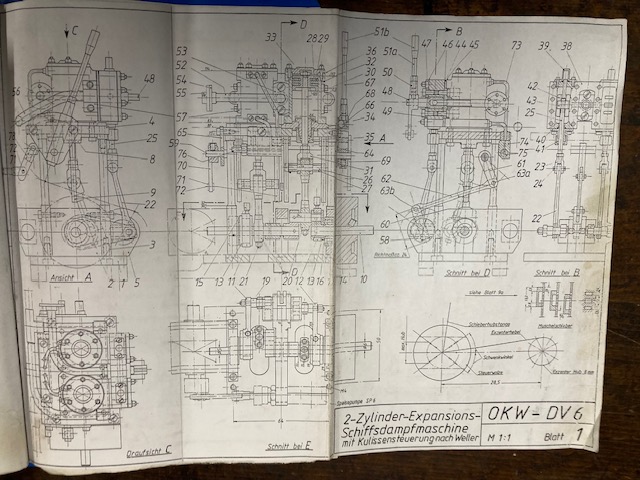 C
D
B
53
33
28 29
51b
47 46 44 45
73
39 38
52
36
32
51a
54
30
50
42
48
55
67
48
43
68
56
4
57
66
49
25
34
65
59
35
A
74
40
25
76
64
75
41
8
70
69
61
23
31
62
63a
71
26
24
9
72
27
63b
22
22
60
58
3
D
Ansicht A
2 1 5
15
13 11 21
19
20
12
13 16
17
14
10
Schnitt bei D
Schnitt bei B
Siehe Blatt 9a
Schieberhubstange
Exzenterhebel
Muschelschieber
max. Hub
Schwenkwinkel
Steuerwelle
Exzenter Hub 6mm
28,5
Speisepumpe SP 6
64
Draufsicht C
Schnitt bei E
2-Zylinder-Expansions-
Schiffsdampfmaschine
mit Kulissensteuerung nach Weller
OKW - DV 6
M 1:1
Blatt 1